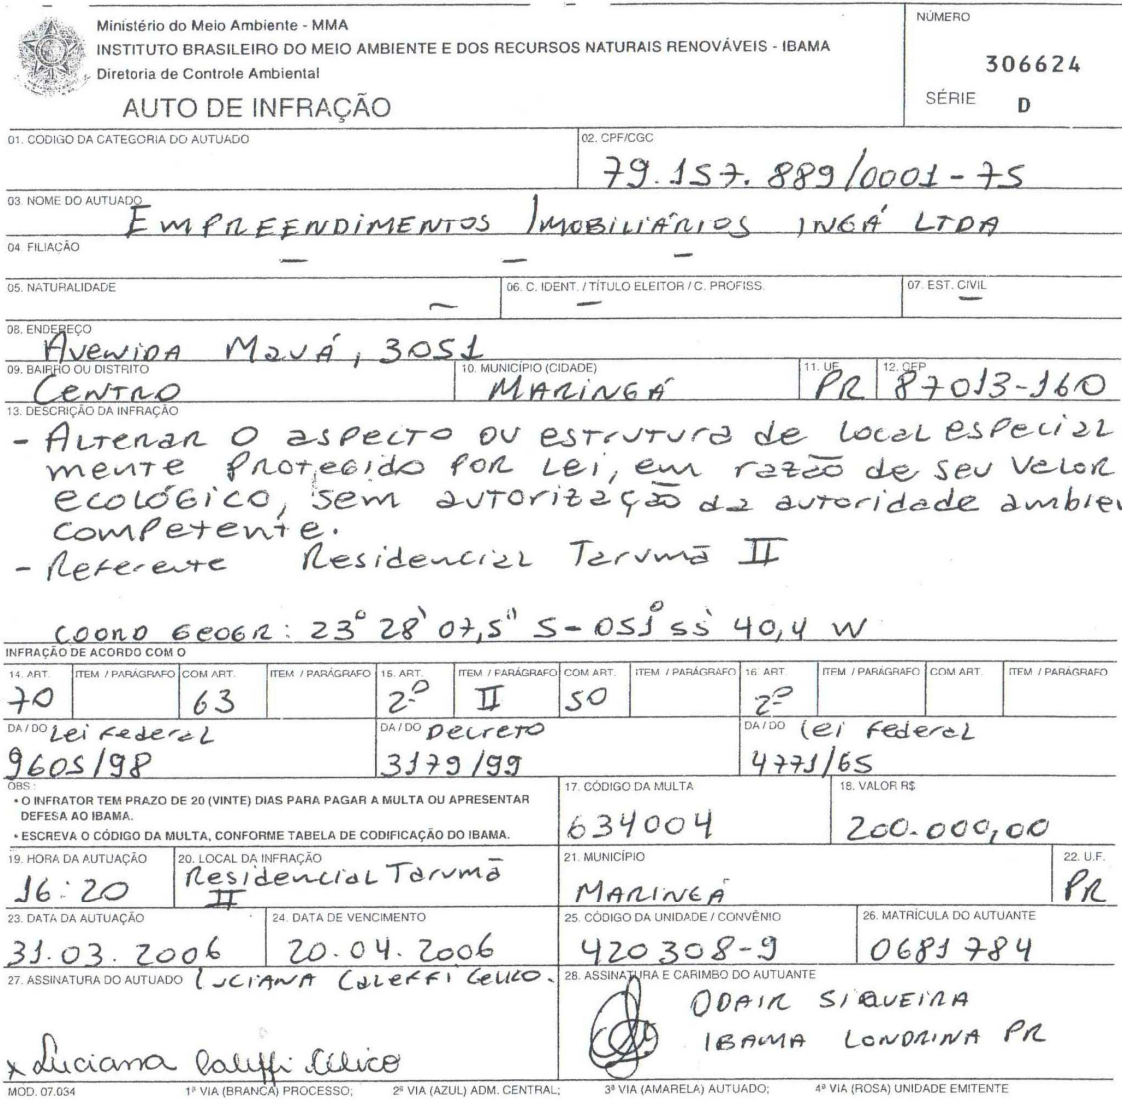 Ministério do Meio Ambiente - MMA
INSTITUTO BRASILEIRO DO MEIO AMBIENTE E DOS RECURSOS NATURAIS RENOVÁVEIS - IBAMA
Diretoria de Controle Ambiental
AUTO DE INFRAÇÃO
NÚMERO
306624
SÉRIE D
01. CÓDIGO DA CATEGORIA DO AUTUADO
02. CPF/CGC
79.157.889/0001-75
03. NOME DO AUTUADO
EMPREENDIMENTOS IMOBILIÁRIOS INGÁ LTDA
04. FILIAÇÃO
— — —
05. NATURALIDADE
—
06. C. IDENT. / TÍTULO ELEITOR / C. PROFISS.
—
07. EST. CIVIL
—
08. ENDEREÇO
AVENIDA MAUÁ, 3051
09. BAIRRO OU DISTRITO
CENTRO
10. MUNICÍPIO (CIDADE)
MARINGÁ
11. UF
PR
12. CEP
87013-160
13. DESCRIÇÃO DA INFRAÇÃO
- Alterar o aspecto ou estrutura de local especial
mente protegido por lei, em razão de seu valor
ecológico, sem autorização da autoridade ambien
competente.
- Referente Residencial Tarumã II
COORD GEOGR: 23° 28' 07,5" S - 051° 55' 40,4 W
INFRAÇÃO DE ACORDO COM O
14. ART. ITEM / PARÁGRAFO COM ART. ITEM / PARÁGRAFO 15. ART. ITEM / PARÁGRAFO COM ART. ITEM / PARÁGRAFO 16 ART. ITEM / PARÁGRAFO COM ART. ITEM / PARÁGRAFO
70 63 2º II 50 2º
DA / DO Lei Federal DA / DO Decreto DA / DO Lei Federal
9605/98 3179/99 4771/65
OBS.:
• O INFRATOR TEM PRAZO DE 20 (VINTE) DIAS PARA PAGAR A MULTA OU APRESENTAR
DEFESA AO IBAMA.
• ESCREVA O CÓDIGO DA MULTA, CONFORME TABELA DE CODIFICAÇÃO DO IBAMA.
17. CÓDIGO DA MULTA
634004
18. VALOR R$
200.000,00
19. HORA DA AUTUAÇÃO
16:20
20. LOCAL DA INFRAÇÃO
Residencial Tarumã
II
21. MUNICÍPIO
MARINGÁ
22. U.F.
PR
23. DATA DA AUTUAÇÃO
31.03.2006
24. DATA DE VENCIMENTO
20.04.2006
25. CÓDIGO DA UNIDADE / CONVÊNIO
420308-9
26. MATRÍCULA DO AUTUANTE
0681784
27. ASSINATURA DO AUTUADO LUCIANA Caleffi
x Luciana Caleffi
28. ASSINATURA E CARIMBO DO AUTUANTE
ODAIR SIQUEIRA
IBAMA LONDRINA PR
MOD. 07.034 1ª VIA (BRANCA) PROCESSO; 2ª VIA (AZUL) ADM. CENTRAL; 3ª VIA (AMARELA) AUTUADO; 4ª VIA (ROSA) UNIDADE EMITENTE